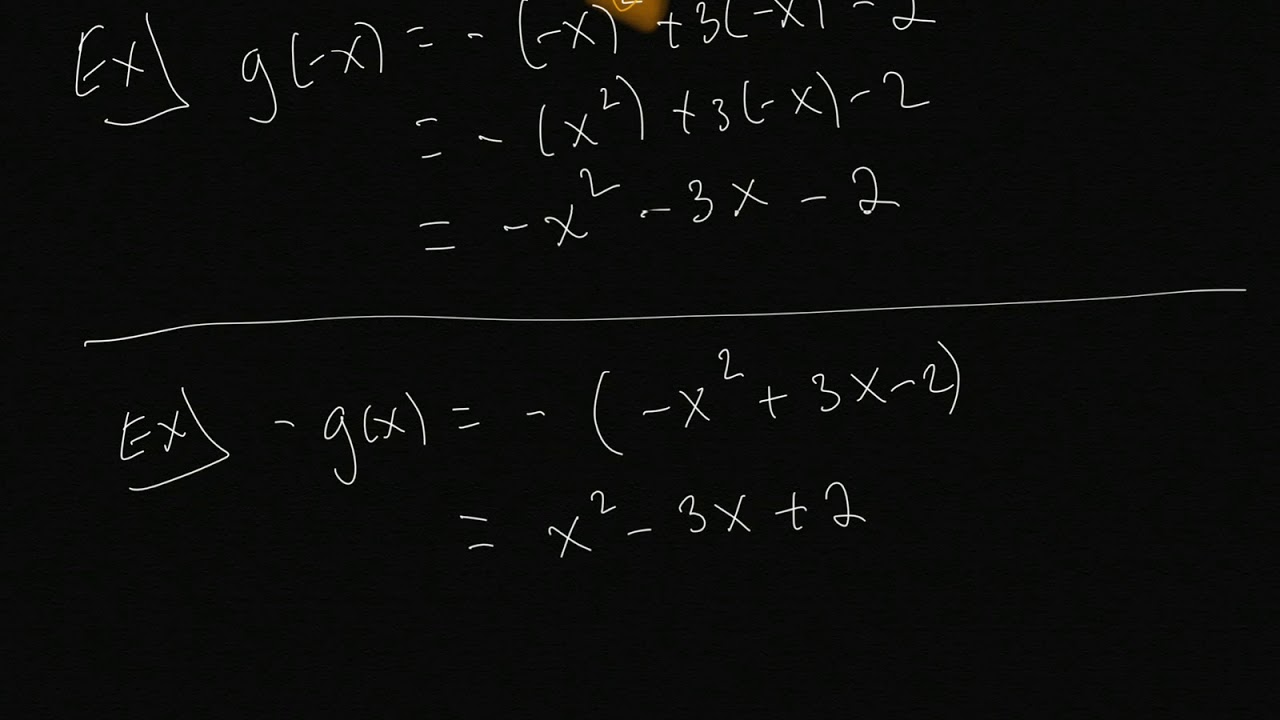 Ex) g(-x) = -(-x)² + 3(-x) - 2
= -(x²) + 3(-x) - 2
= -x² - 3x - 2
Ex) -g(x) = -(-x² + 3x - 2)
= x² - 3x + 2